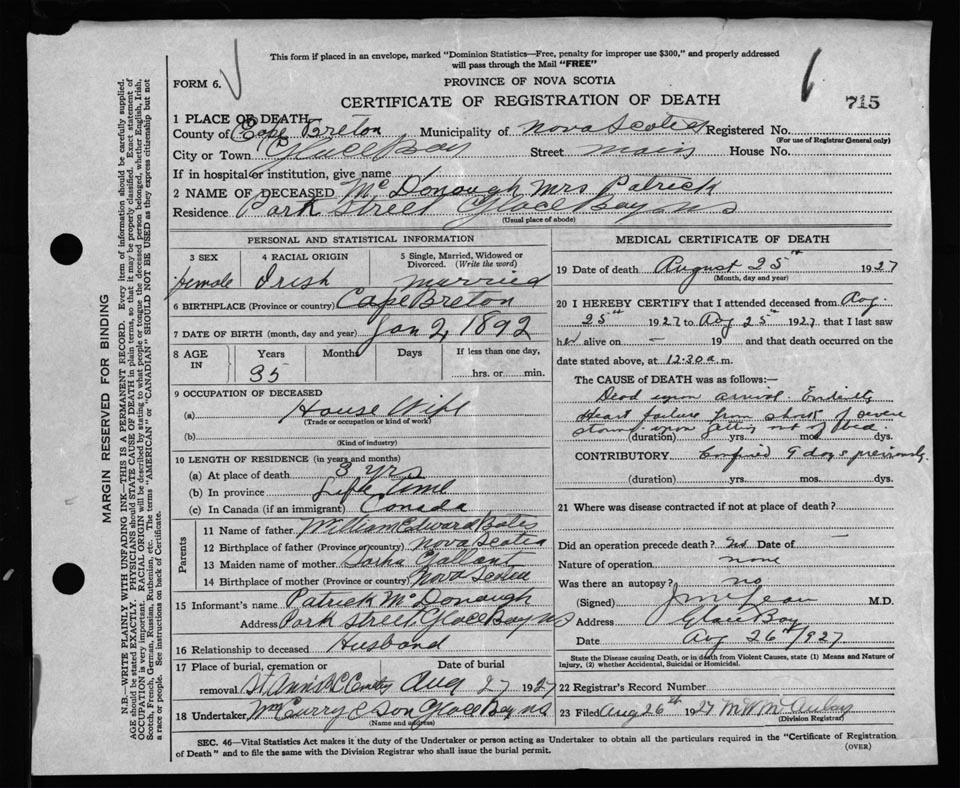 This form if placed in an envelope, marked "Dominion Statistics—Free, penalty for improper use $300," and properly addressed
will pass through the Mail "FREE"
FORM 6.
PROVINCE OF NOVA SCOTIA
CERTIFICATE OF REGISTRATION OF DEATH
715
1 PLACE OF DEATH
County of Cape Breton Municipality of Nova Scotia Registered No.
(For use of Registrar General only)
City or Town Glace Bay Street main House No.
If in hospital or institution, give name
2 NAME OF DECEASED McDonough Mrs Patrick
Residence Park Street Glace Bay NS
(Usual place of abode)
PERSONAL AND STATISTICAL INFORMATION
3 SEX 4 RACIAL ORIGIN 5 Single, Married, Widowed or Divorced. (Write the word)
Female Irish married
6 BIRTHPLACE (Province or country) Cape Breton
7 DATE OF BIRTH (month, day and year) Jan 2, 1892
8 AGE IN Years Months Days If less than one day,
35 hrs. or min.
9 OCCUPATION OF DECEASED
(a) House Wife
(Trade or occupation or kind of work)
(b)
(Kind of industry)
10 LENGTH OF RESIDENCE (in years and months)
(a) At place of death 3 yrs
(b) In province Life time
(c) In Canada (if an immigrant) Canada
Parents
11 Name of father William Edward Bates
12 Birthplace of father (Province or country) Nova Scotia
13 Maiden name of mother Gallant
14 Birthplace of mother (Province or country) Nova Scotia
15 Informant's name Patrick McDonough
Address Park Street, Glace Bay NS
16 Relationship to deceased Husband
17 Place of burial, cremation or removal Date of burial
St Ann's RC Aug 27 1927
18 Undertaker McCurry & Son Glace Bay NS
(Name and address)
MEDICAL CERTIFICATE OF DEATH
19 Date of death August 25th 1927
(Month, day and year)
20 I HEREBY CERTIFY that I attended deceased from Aug.
25th 1927 to Aug 25th 1927, that I last saw
her alive on — 19 and that death occurred on the
date stated above, at 12.30 a. m.
The CAUSE of DEATH was as follows:—
Dead upon arrival. Evidently
Heart failure from shock of severe
storm upon getting out of bed.
(duration) yrs. mos. dys.
CONTRIBUTORY Confined 9 days previously.
(duration) yrs. mos. dys.
21 Where was disease contracted if not at place of death?
Did an operation precede death? No Date of —
Nature of operation none
Was there an autopsy? no
(Signed) M.D.
Address Glace Bay
Date Aug 26th 1927
State the Disease causing Death, or in death from Violent Causes, state (1) Means and Nature of
Injury, (2) whether Accidental, Suicidal or Homicidal.
22 Registrar's Record Number
23 Filed Aug 26th 1927 M W McAulay
(Division Registrar)
SEC. 46—Vital Statistics Act makes it the duty of the Undertaker or person acting as Undertaker to obtain all the particulars required in the "Certificate of Registration
of Death" and to file the same with the Division Registrar who shall issue the burial permit.
(OVER)
MARGIN RESERVED FOR BINDING
N.B.—WRITE PLAINLY WITH UNFADING INK—THIS IS A PERMANENT RECORD. Every item of information should be carefully supplied.
AGE should be stated EXACTLY. PHYSICIANS should STATE CAUSE OF DEATH in plain terms, so that it may be properly classified. Exact statement of
OCCUPATION is very important. RACIAL ORIGIN will be described by stating to what people or tongue the deceased person belonged, whether English, Irish,
Scotch, French, German, Russian, Ruthenian, etc. The terms "AMERICAN" or "CANADIAN" SHOULD NOT BE USED as they express citizenship but not
a race or people. See instructions on back of Certificate.